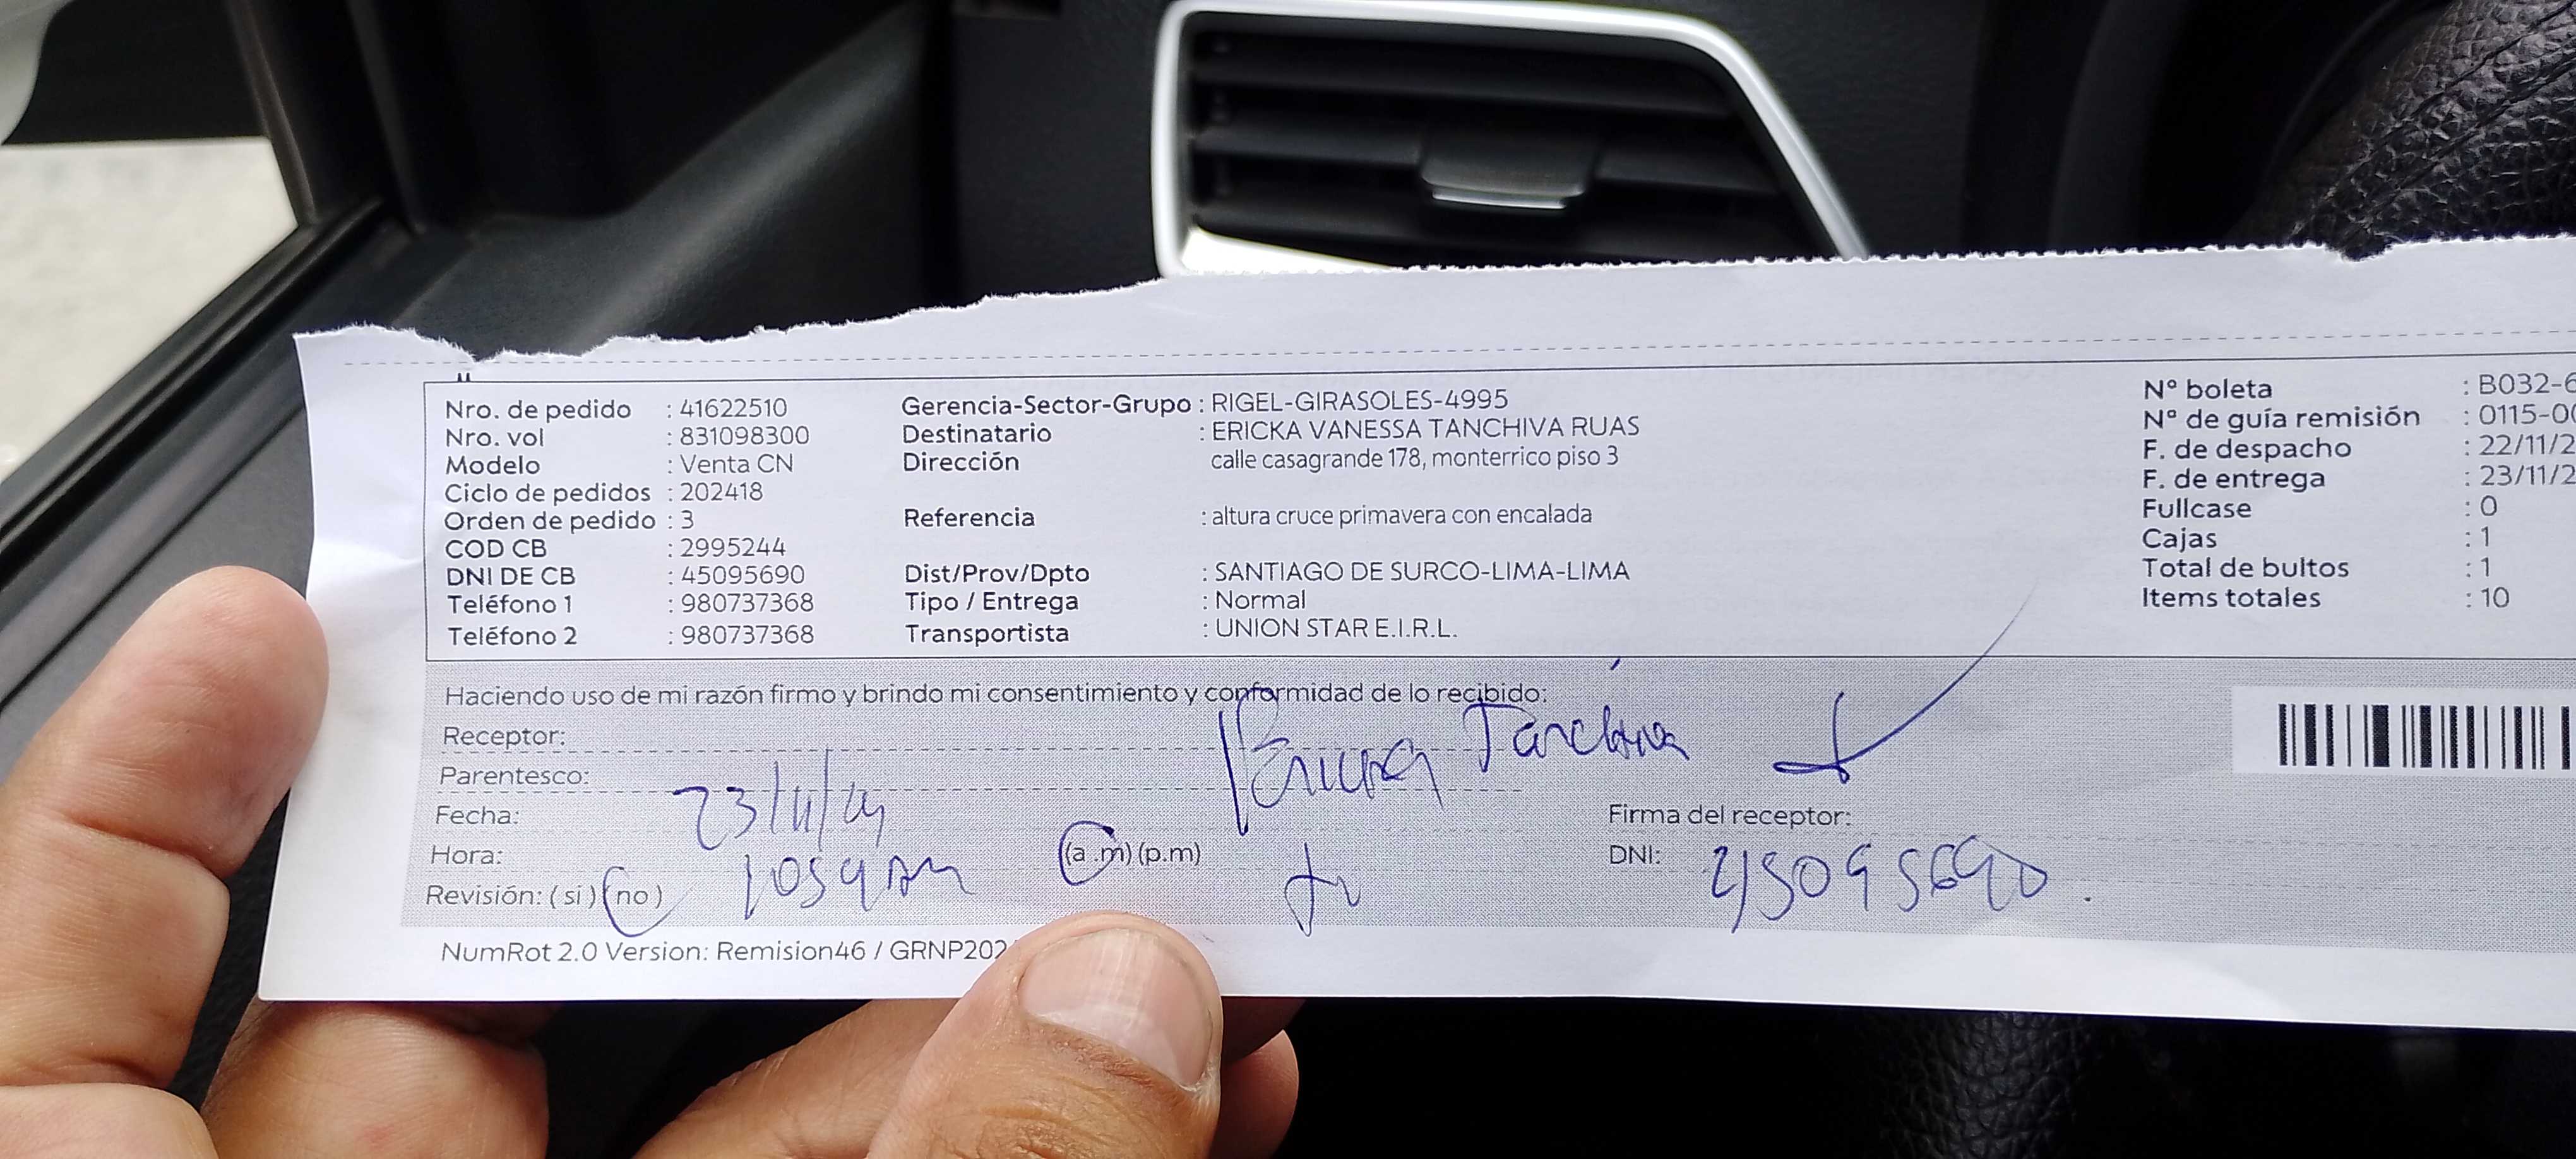 Nro. de pedido : 41622510
Nro. vol : 831098300
Modelo : Venta CN
Ciclo de pedidos : 202418
Orden de pedido : 3
COD CB : 2995244
DNI DE CB : 45095690
Teléfono 1 : 980737368
Teléfono 2 : 980737368
Gerencia-Sector-Grupo : RIGEL-GIRASOLES-4995
Destinatario : ERICKA VANESSA TANCHIVA RUAS
Dirección calle casagrande 178, monterrico piso 3
Referencia : altura cruce primavera con encalada
Dist/Prov/Dpto : SANTIAGO DE SURCO-LIMA-LIMA
Tipo / Entrega : Normal
Transportista : UNION STAR E.I.R.L.
N° boleta : B032-6
N° de guía remisión : 0115-00
F. de despacho : 22/11/2
F. de entrega : 23/11/2
Fullcase : 0
Cajas : 1
Total de bultos : 1
Items totales : 10
Haciendo uso de mi razón firmo y brindo mi consentimiento y conformidad de lo recibido:
Receptor: Ericka Tanchiva
Parentesco:
Fecha: 23/11/24
Hora: 1059am (a .m) (p.m)
Revisión: ( sí ) (no )
Firma del receptor:
DNI: 45095690
NumRot 2.0 Version: Remision46 / GRNP202